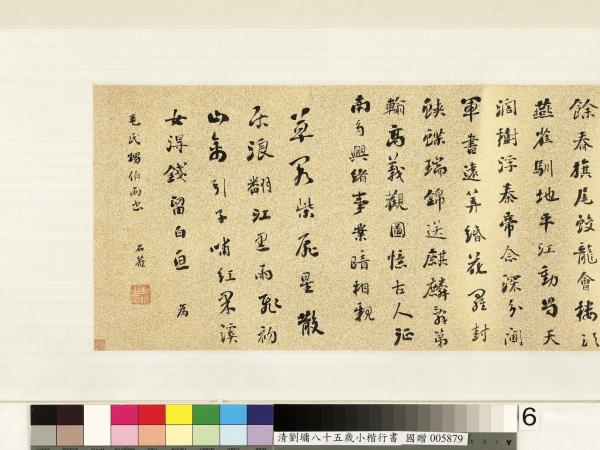 餘春旗尾蛟龍會樓頭
燕雀馴地平江動蜀天
闊樹浮秦帝念深分閫
軍書遠筭緡花羅封
蛺蝶瑞錦送麒麟辭第
輸高義觀圖憶古人征
南多興緒事業暗相親
草閣柴扉星散
居浪翻江黑雨飛初
山禽引子哺紅果溪
女得錢留白魚 為
毛氏甥伯雨書 石菴
清劉墉八十五歲小楷行書 國贈 005879
6